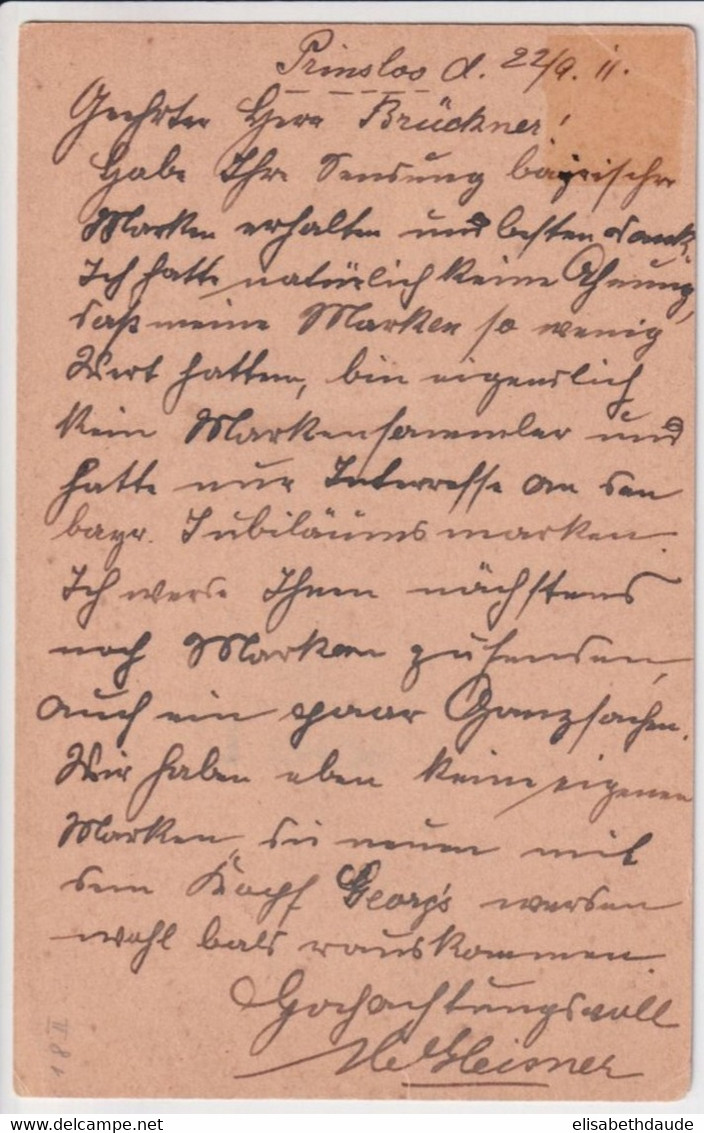 Prinsloo d. 22/9. 11.
Geehrter Herr Brückner!
Habe Ihre Sendung bayrischer
Marken erhalten und besten Dank.
Ich hatte natürlich keine Ahnung,
daß meine Marken so wenig
Wert hatten, bin eigendlich
kein Markensammler und
hatte nur Interresse an den
bayr. Jubiläumsmarken.
Ich werde Ihnen nächstens
noch Marken zusenden,
auch ein paar Ganzsachen.
Wir haben eben keine eigenen
Marken, die neuen mit
dem Kopf Georg's werden
wohl bald rauskommen.
Hochachtungsvoll
18 II
elisabethdaude